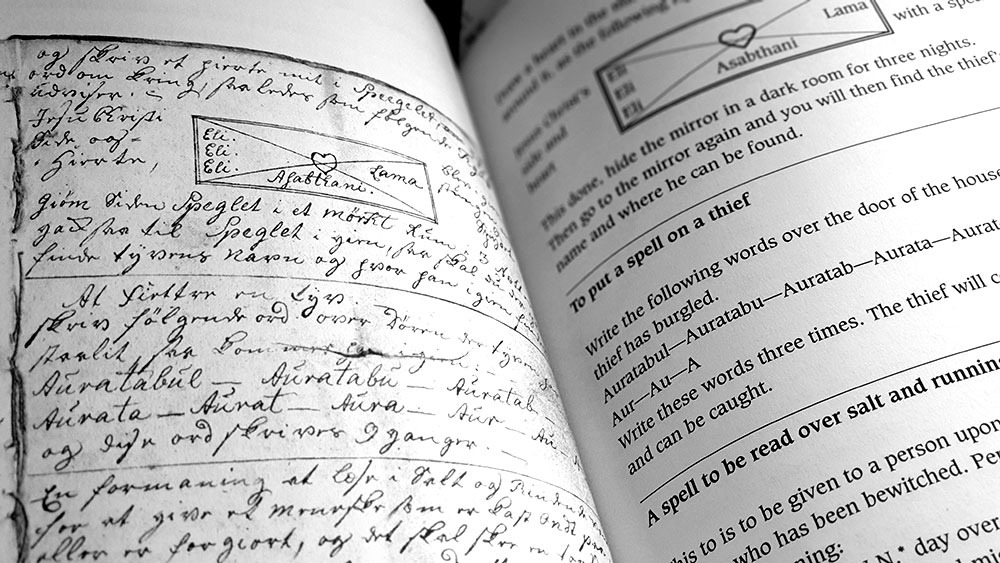 og skriv et hierte mit i Speeglet,
ord om kring, saaledes som følgende
udviser.
Jesu Kristi
Side og
Hierte,
Eli.
Eli.
Eli.
Asabthani.
Lama
giöm Siden Speglet i et mörkt Rum, i 3
gaa saa til Speglet i gien, saa skal du
finde tyvens navn og hvor han i gien
At fiettre en tyv
skriv fölgende ord over Dören der tyven
staalit, saa kommer
Auratabul — Auratabu — Auratab
Aurata — Aurat — Aura — Aur — Au
og disse ord skrives 9 ganger.
En formaning at læse i Salt og Rindende
for at give et menneske som er kast Ondt paa
eller er forgiort, og det skal skee en
Draw a heart in the
around it, so the following
Jesus Christ's
side and
heart
Eli
Eli
Eli
Asabthani
Lama
with a spe
This done, hide the mirror in a dark room for three nights.
Then go to the mirror again and you will then find the thief
name and where he can be found.
To put a spell on a thief
Write the following words over the door of the house
thief has burgled.
Auratabul—Auratabu—Auratab—Aurata—Aurat
Aur—Au—A
Write these words three times. The thief will c
and can be caught.
A spell to be read over salt and runnin
his to is to be given to a person upon
who has been bewitched. Per
ning:
N.* day over